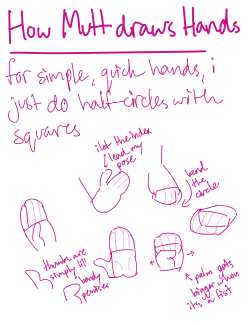 How Mutt draws Hands
for simple, quick hands, i
just do half-circles with
squares
i let the index
lead my
pose
bend
the
circle
thumbs are
simply lil'
bendy
penises
palm gets
bigger when
it's a fist